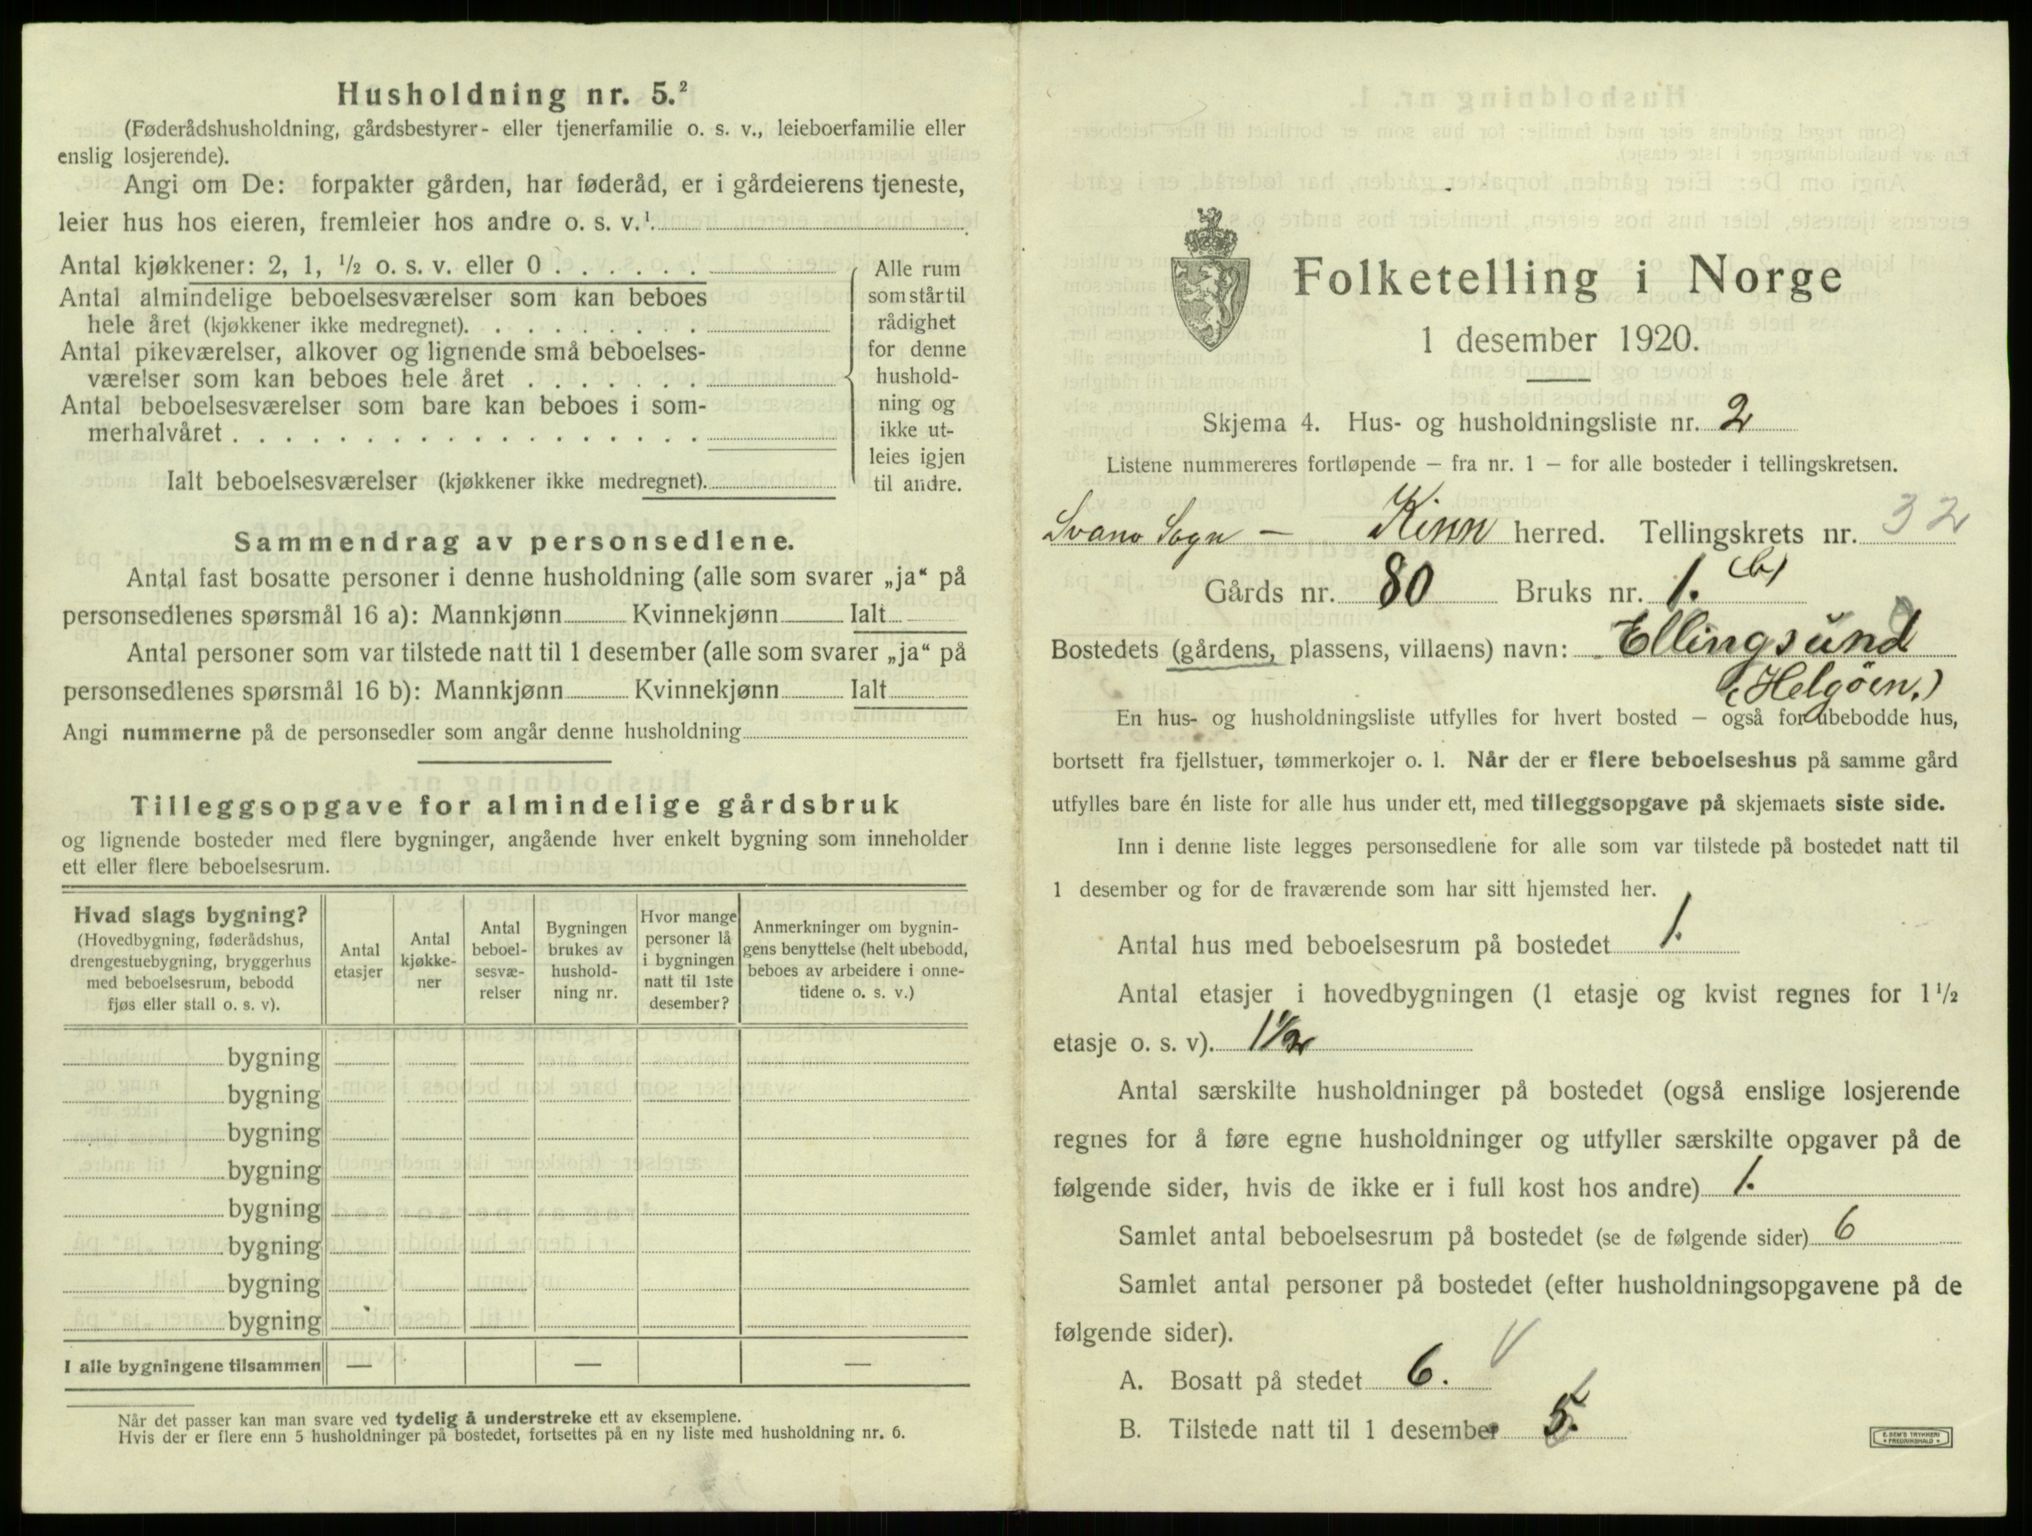 Husholdning nr. 5.²
(Føderådshusholdning, gårdsbestyrer- eller tjenerfamilie o. s. v., leieboerfamilie eller
enslig losjerende).
Angi om De: forpakter gården, har føderåd, er i gårdeierens tjeneste,
leier hus hos eieren, fremleier hos andre o. s. v.¹
Antal kjøkkener: 2, 1, ½ o. s. v. eller 0 . . . . . .
Antal almindelige beboelsesværelser som kan beboes
hele året (kjøkkener ikke medregnet). . . . . . . . .
Antal pikeværelser, alkover og lignende små beboelses-
værelser som kan beboes hele året . . . . . . .
Antal beboelsesværelser som bare kan beboes i som-
merhalvåret . . . . . . . . . . . . . . . . . .
Ialt beboelsesværelser (kjøkkener ikke medregnet).
Alle rum
som står til
rådighet
for denne
hushold-
ning og
ikke ut-
leies igjen
til andre.
Sammendrag av personsedlene.
Antal fast bosatte personer i denne husholdning (alle som svarer „ja“ på
personsedlenes spørsmål 16 a): Mannkjønn Kvinnekjønn Ialt
Antal personer som var tilstede natt til 1 desember (alle som svarer „ja“ på
personsedlenes spørsmål 16 b): Mannkjønn Kvinnekjønn Ialt
Angi nummerne på de personsedler som angår denne husholdning
Tilleggsopgave for almindelige gårdsbruk
og lignende bosteder med flere bygninger, angående hver enkelt bygning som inneholder
ett eller flere beboelsesrum.
Hvad slags bygning?
(Hovedbygning, føderådshus,
drengestuebygning, bryggerhus
med beboelsesrum, bebodd
fjøs eller stall o. s. v).
Antal
etasjer
Antal
kjøkke-
ner
Antal
beboel-
sesvæ-
relser
Bygningen
brukes av
hushold-
ning nr.
Hvor mange
personer lå
i bygningen
natt til 1ste
desember?
Anmerkninger om bygnin-
gens benyttelse (helt ubebodd,
beboes av arbeidere i onne-
tidene o. s. v.)
bygning
bygning
bygning
bygning
bygning
bygning
bygning
bygning
I alle bygningene tilsammen — — —
Når det passer kan man svare ved tydelig å understreke ett av eksemplene.
Hvis der er flere enn 5 husholdninger på bostedet, fortsettes på en ny liste med husholdning nr. 6.
Folketelling i Norge
1 desember 1920.
Skjema 4. Hus- og husholdningsliste nr. 2
Listene nummereres fortløpende – fra nr. 1 – for alle bosteder i tellingskretsen.
Svanø Sogn – Kinn herred. Tellingskrets nr. 32
Gårds nr. 80 Bruks nr. 1. (b)
Bostedets (gårdens, plassens, villaens) navn: Ellingsund
(Helgøen.)
En hus- og husholdningsliste utfylles for hvert bosted – også for ubebodde hus,
bortsett fra fjellstuer, tømmerkojer o. l. Når der er flere beboelseshus på samme gård
utfylles bare én liste for alle hus under ett, med tilleggsopgave på skjemaets siste side.
Inn i denne liste legges personsedlene for alle som var tilstede på bostedet natt til
1 desember og for de fraværende som har sitt hjemsted her.
Antal hus med beboelsesrum på bostedet 1.
Antal etasjer i hovedbygningen (1 etasje og kvist regnes for 1½
etasje o. s. v). 1½
Antal særskilte husholdninger på bostedet (også enslige losjerende
regnes for å føre egne husholdninger og utfyller særskilte opgaver på de
følgende sider, hvis de ikke er i full kost hos andre) 1.
Samlet antal beboelsesrum på bostedet (se de følgende sider) 6
Samlet antal personer på bostedet (efter husholdningsopgavene på de
følgende sider).
A. Bosatt på stedet 6.
B. Tilstede natt til 1 desember 5.
E. SEM'S TRYKKERI
FREDRIKSHALD